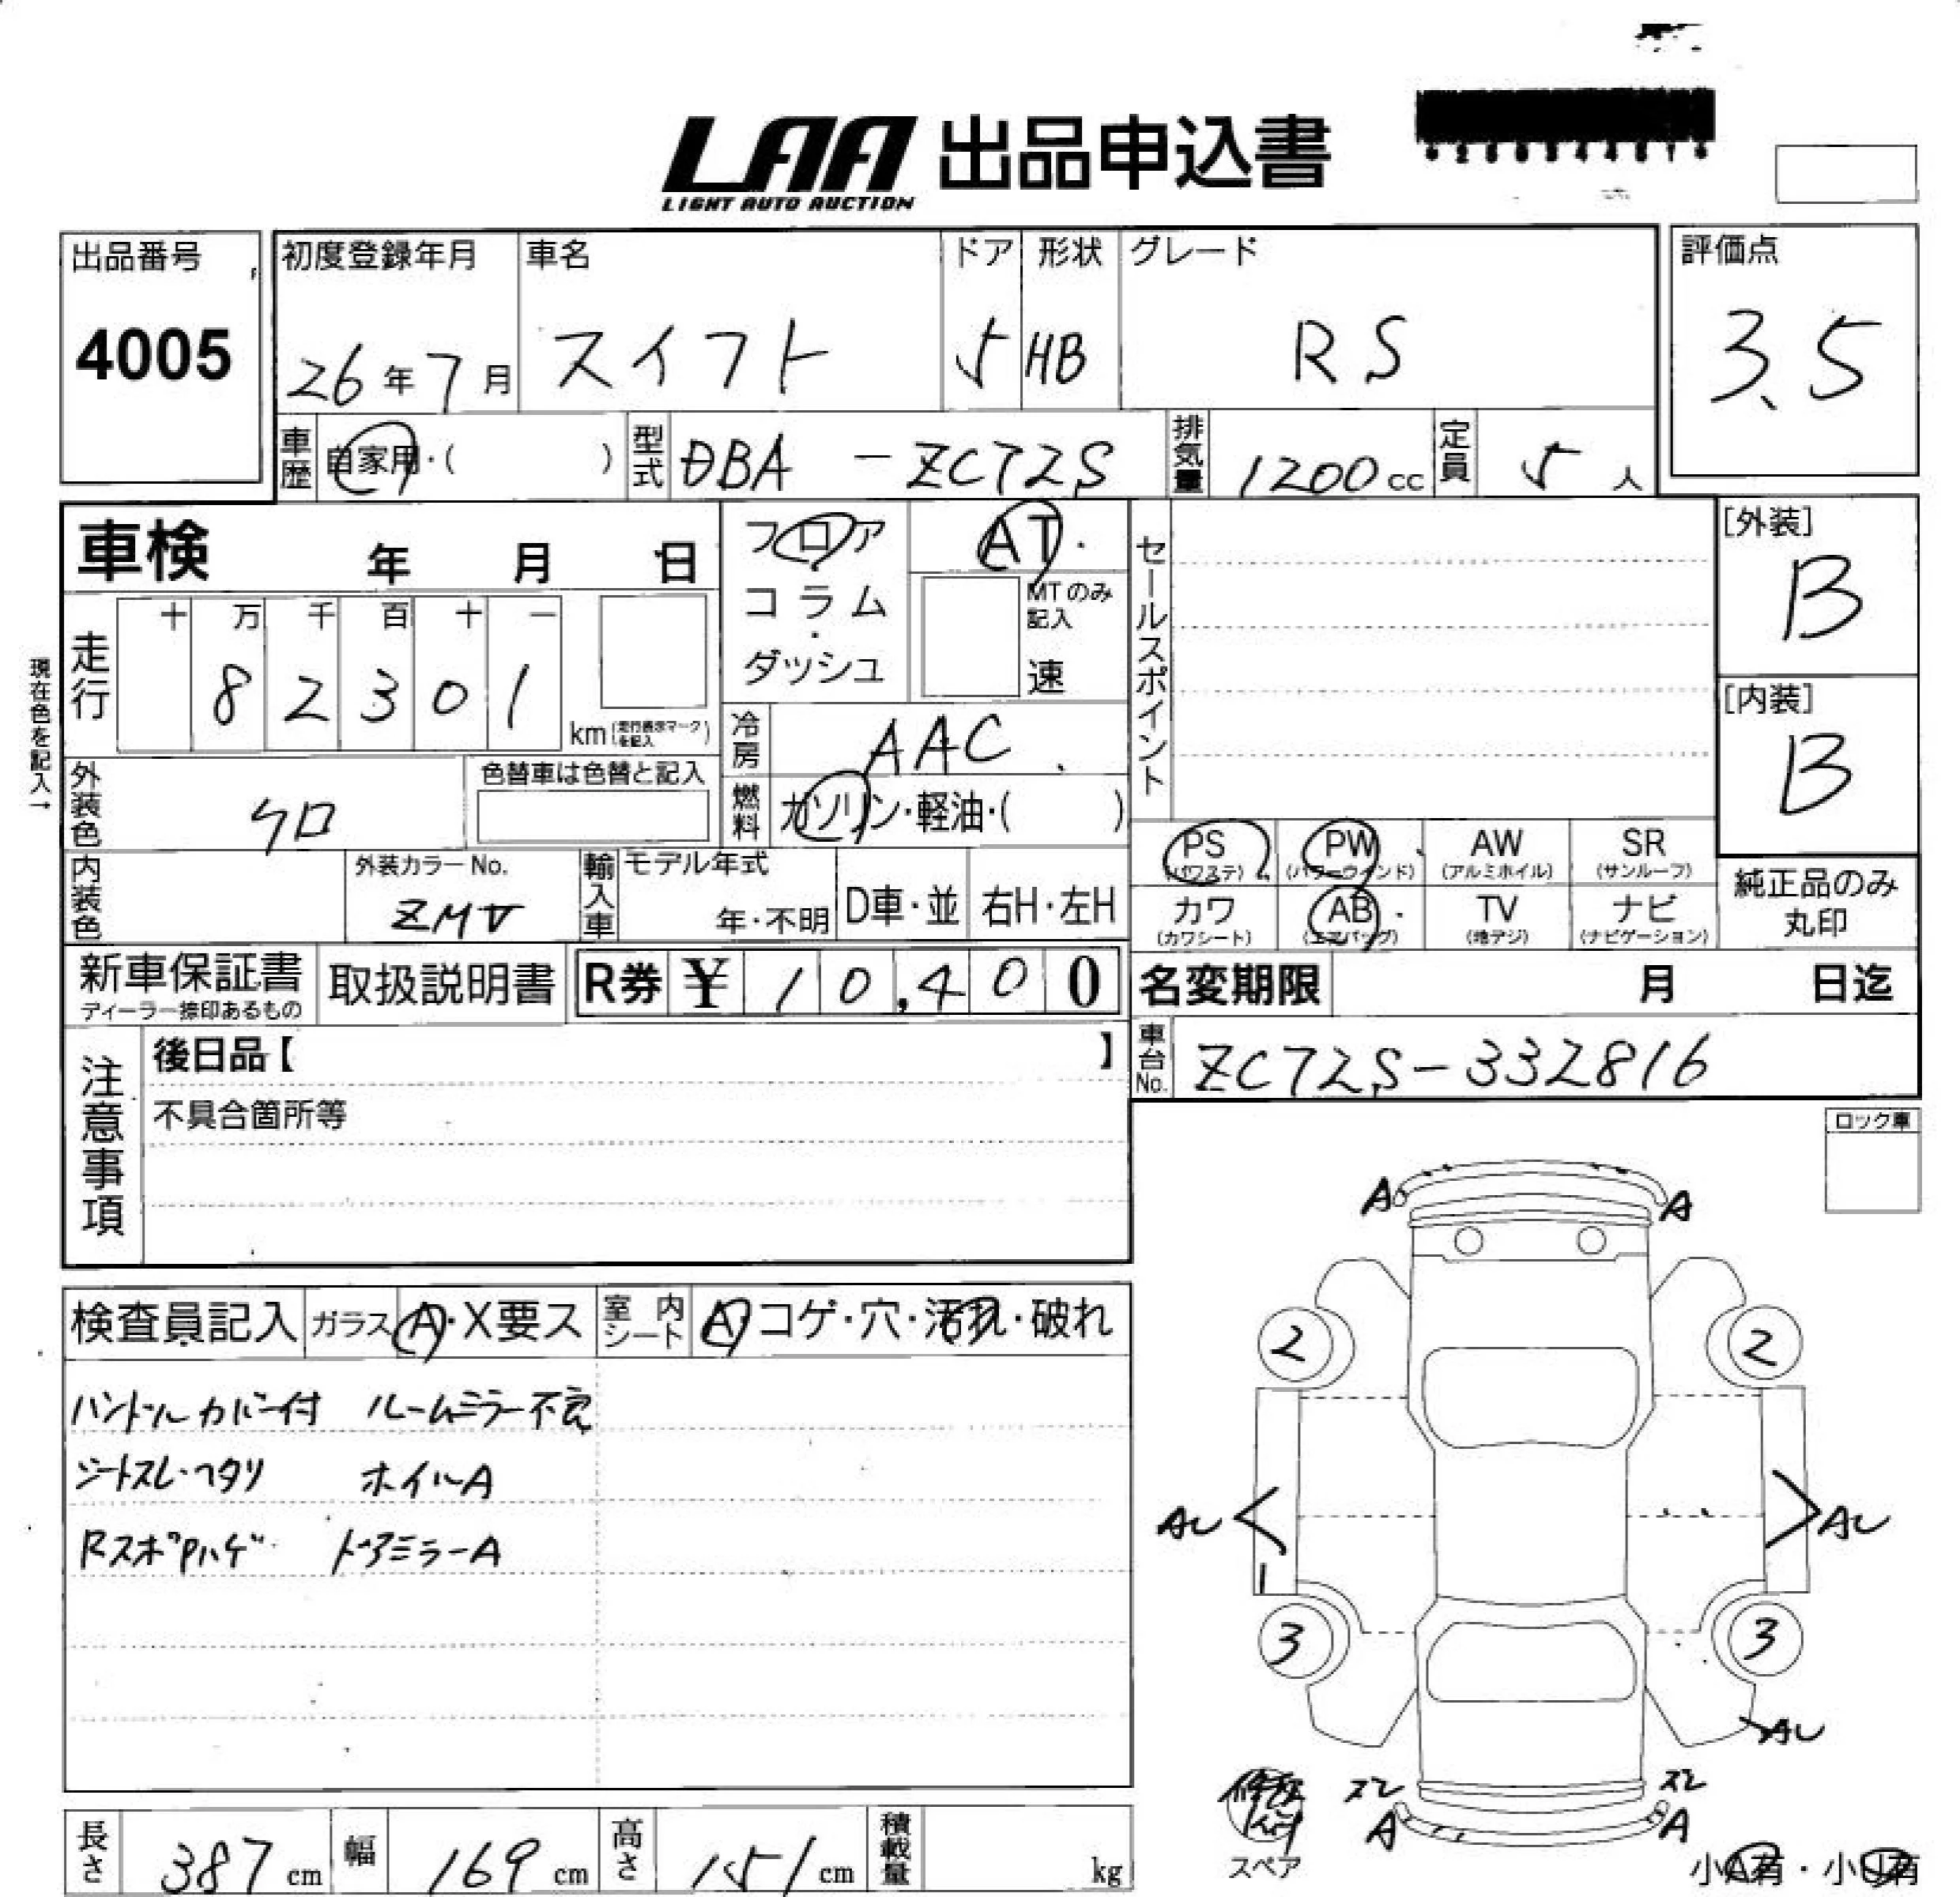 LAA 出品申込書
LIGHT AUTO AUCTION
出品番号
4005
初度登録年月
26年7月
車名
スイフト
ドア
5
形状
HB
グレード
RS
評価点
3.5
車歴
自家用・( )
型式
DBA-ZC72S
排気量
1200cc
定員
5人
車検 年 月 日
フロア
コラム
・
ダッシュ
AT・
MTのみ
記入
速
セールスポイント
[外装]
B
[内装]
B
現在色を記入→
走行
十 万 千 百 十 一
8 2 3 0 1
km(走行表示マークを記入)
冷房
AAC
燃料
ガソリン・軽油・( )
外装色
クロ
色替車は色替と記入
内装色
外装カラーNo.
ZMV
輸入車
モデル年式
年・不明
D車・並
右H・左H
PS
(パワステ)
PW
(パワーウィンド)
AW
(アルミホイル)
SR
(サンルーフ)
カワ
(カワシート)
AB
(エアバッグ)
TV
(地デジ)
ナビ
(ナビゲーション)
純正品のみ
丸印
新車保証書
ディーラー捺印あるもの
取扱説明書
R券 ¥ 10,400
名変期限 月 日迄
車台No.
ZC72S-332816
注意事項
後日品【 】
不具合箇所等
ロック車
検査員記入
ガラス
A・X要ス
室内
シート
A・コゲ・穴・汚れ・破れ
ハンドルカバー付 ルームミラー不良
シートスレ・ヘタリ ホイルA
RスポPハゲ ドアミラーA
A A
2 2
AU AU
3 3
AU
スレ スレ
A A
スペア
小A有・小U有
長さ
387cm
幅
169cm
高さ
151cm
積載量
kg